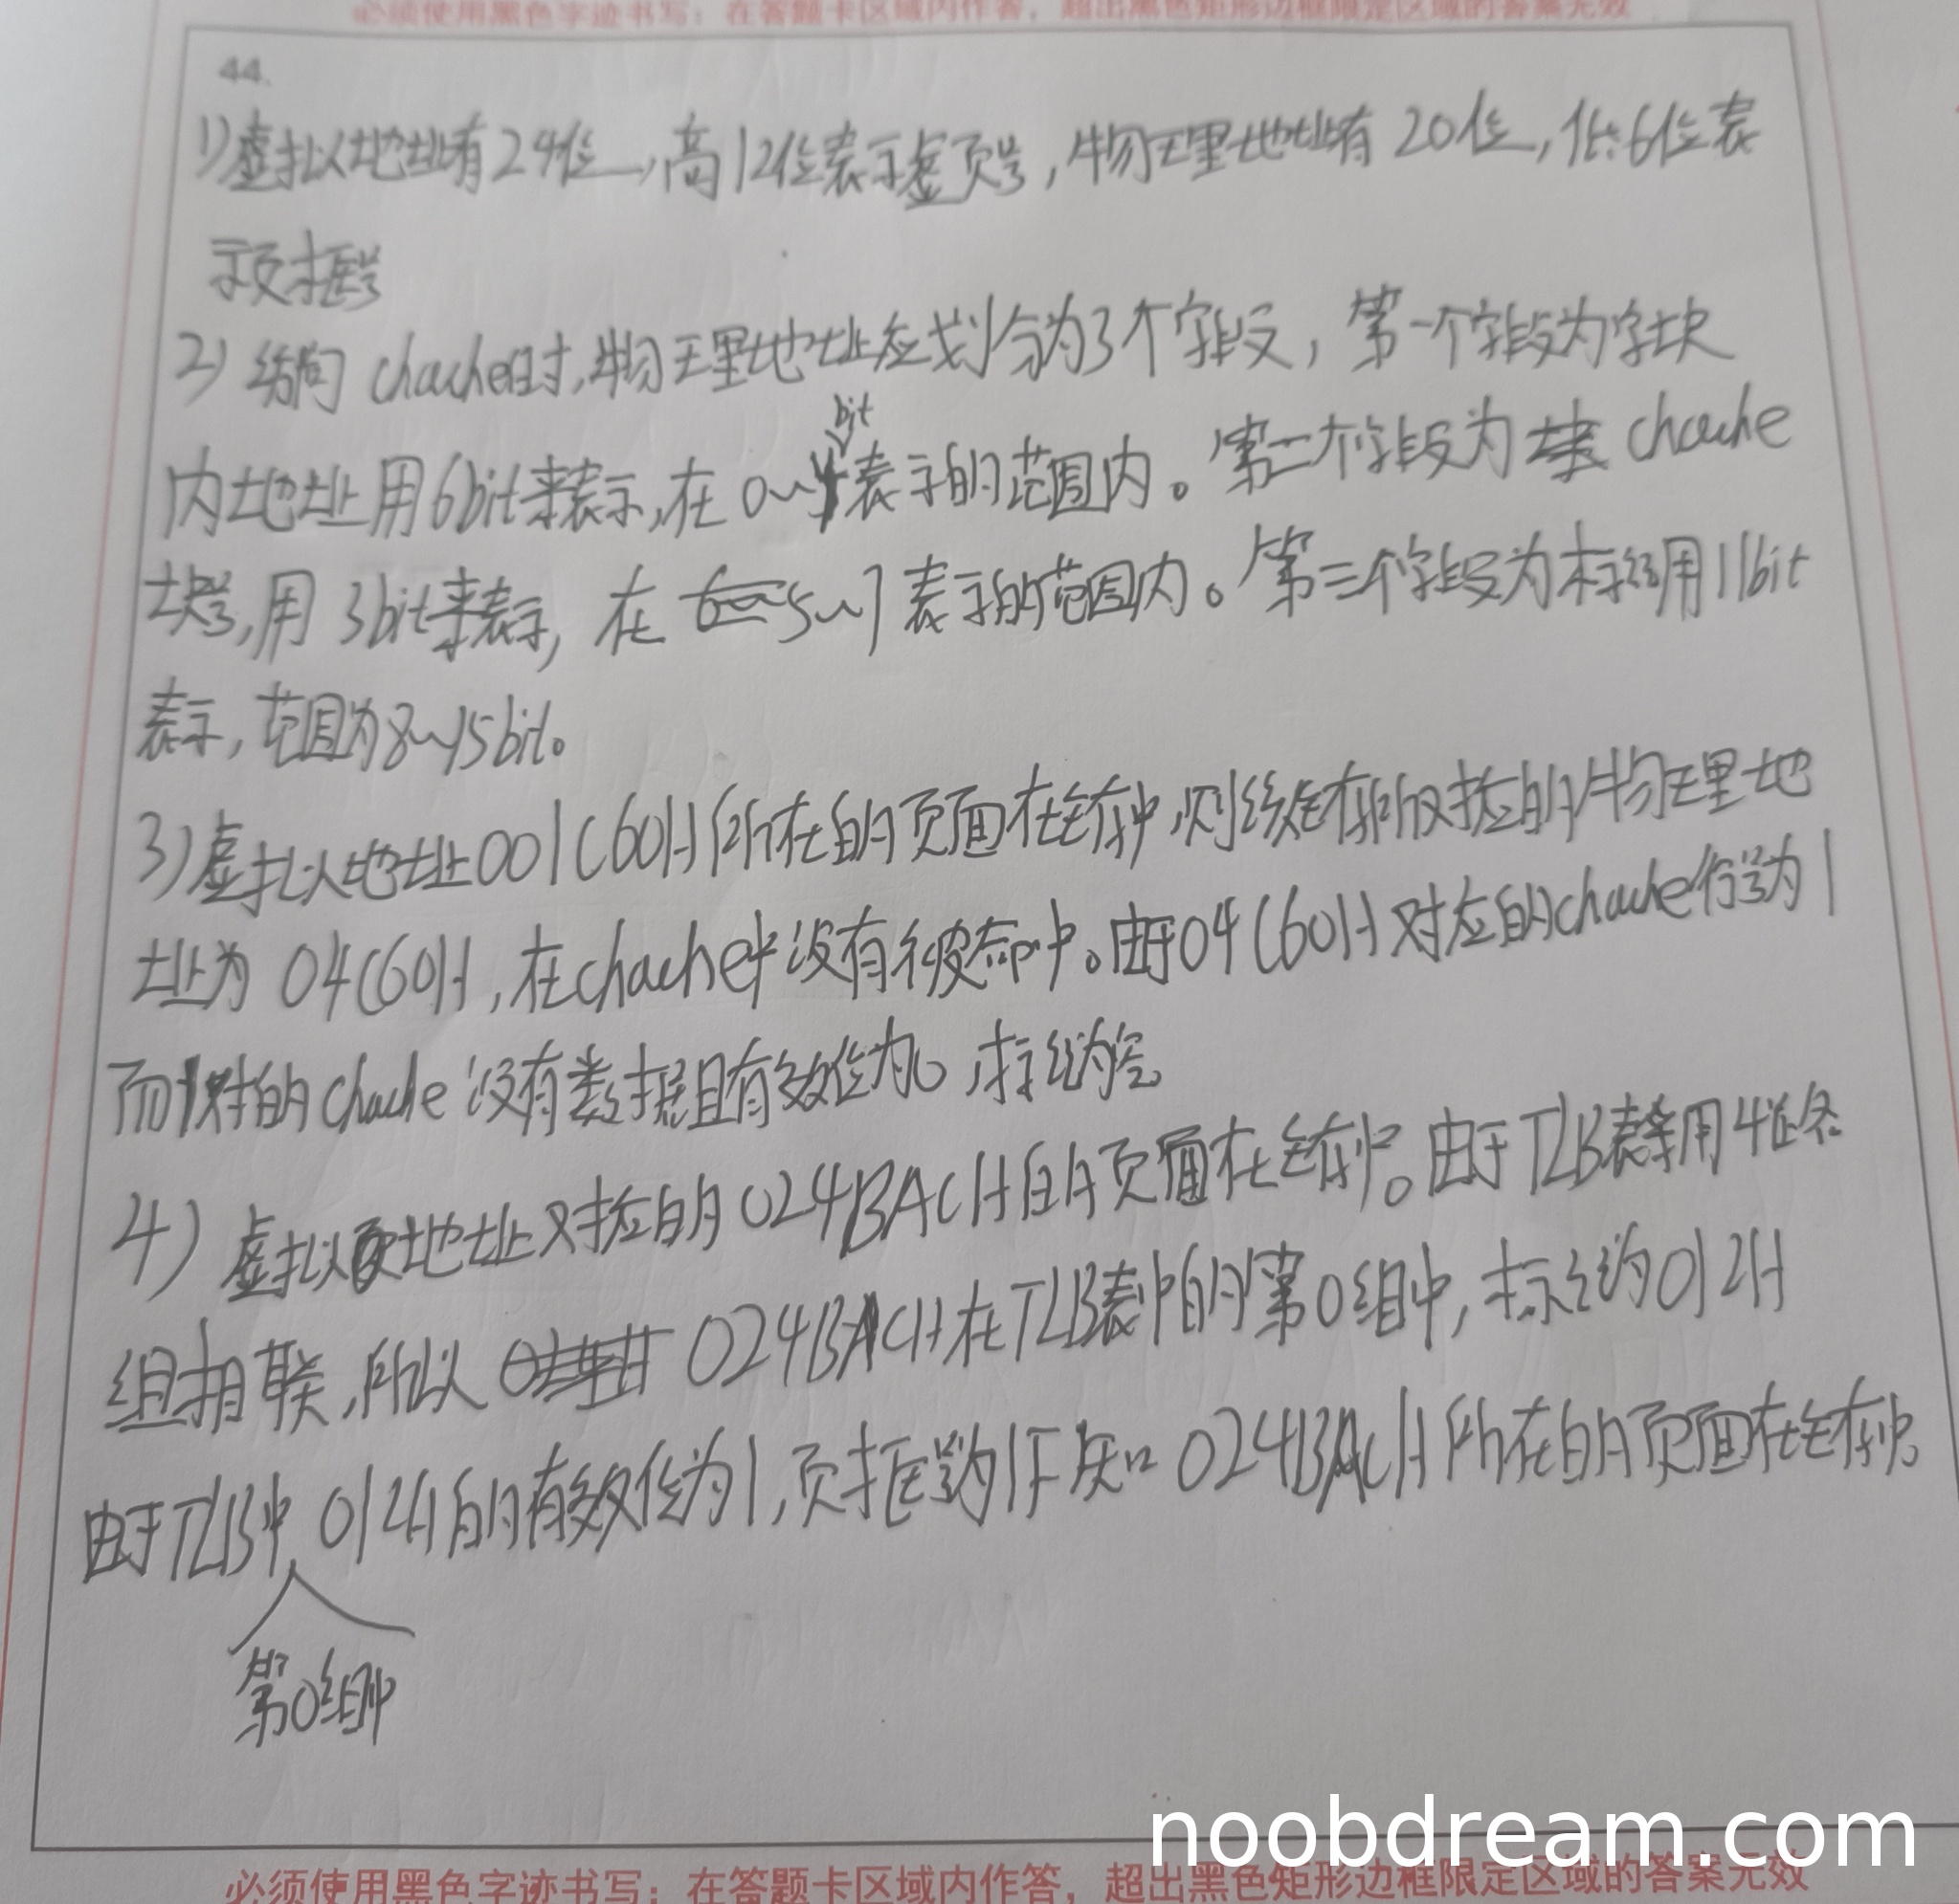 必须使用黑色字迹书写；在答题卡区域内作答，超出黑色矩形边框限定区域的答案无效
44.
1)虚拟地址有24位，高12位表示虚页号，物理地址有20位，低6位表
示页框号
2) 访问chache时，物理地址应划分为3个字段，第一个字段为字块
bit
内地址用6bit来表示，在0~4表示的范围内。第二个字段为 chache
块号，用3bit来表示，在 5~7表示的范围内。第三个字段为标记用11bit
表示，范围为8~15bit。
3)虚拟地址001C60H所在的页面在主存中，则该主存所对应的物理地
址为 04C60H，在chache中没有被命中。由于04C60H对应的chache行号为1
而1对的chache没有数据且有效位为0，标记为空
4) 虚拟地址对应的024BACH的页面在主存中。由于TLB表采用4路
组相联，所以 024BACH在TLB表中的第0组中，标记为012H
由于TLB中 012H的有效位为1，页框号为1F 知 024BACH所在的页面在主存中。
第0组中
noobdream.com
必须使用黑色字迹书写；在答题卡区域内作答，超出黑色矩形边框限定区域的答案无效